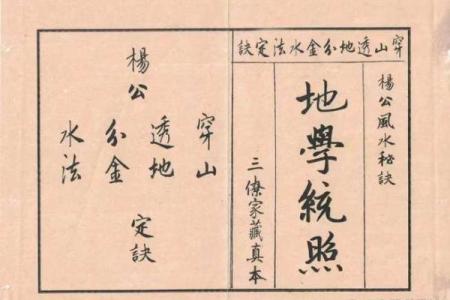 穿山透地分金水法定訣
楊公風水秘訣
地學統照
三僚家藏真本
楊公
穿山
透地
分金
水法
定訣